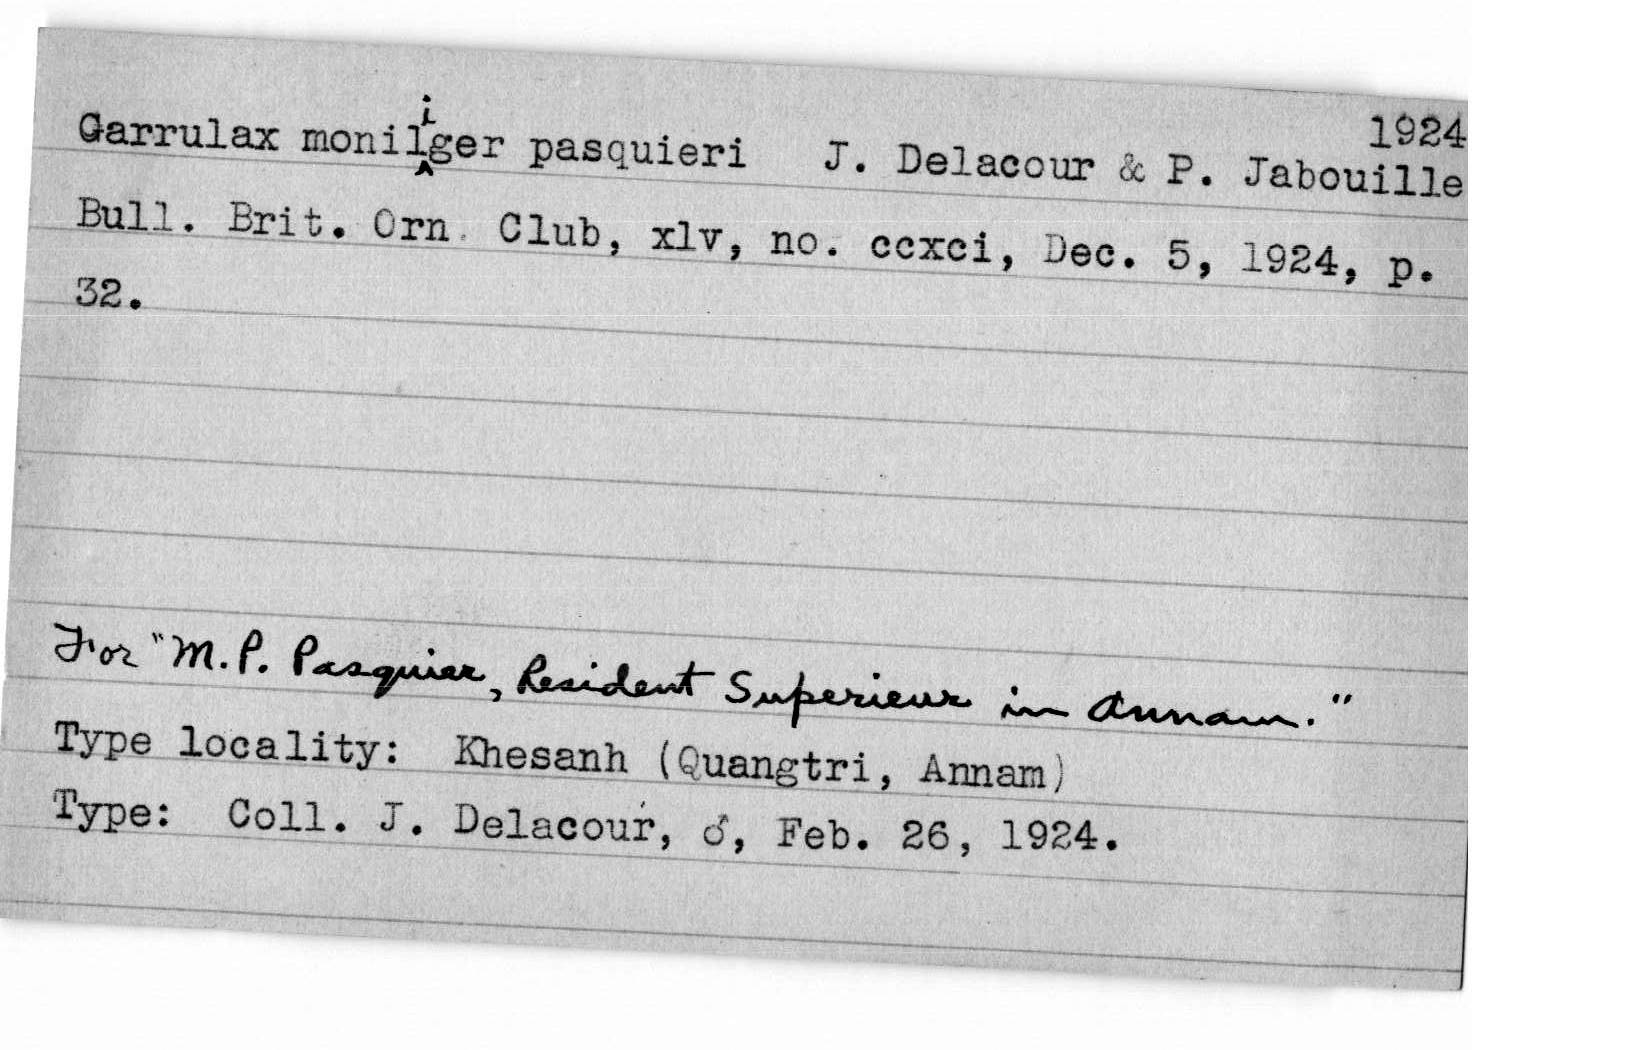 1924
Garrulax moniliger pasquieri J. Delacour & P. Jabouille
Bull. Brit. Orn. Club, xlv, no. ccxci, Dec. 5, 1924, p.
32.
For "M. P. Pasquier, Resident Superieur in Annam."
Type locality: Khesanh (Quangtri, Annam)
Type: Coll. J. Delacour, ♂, Feb. 26, 1924.